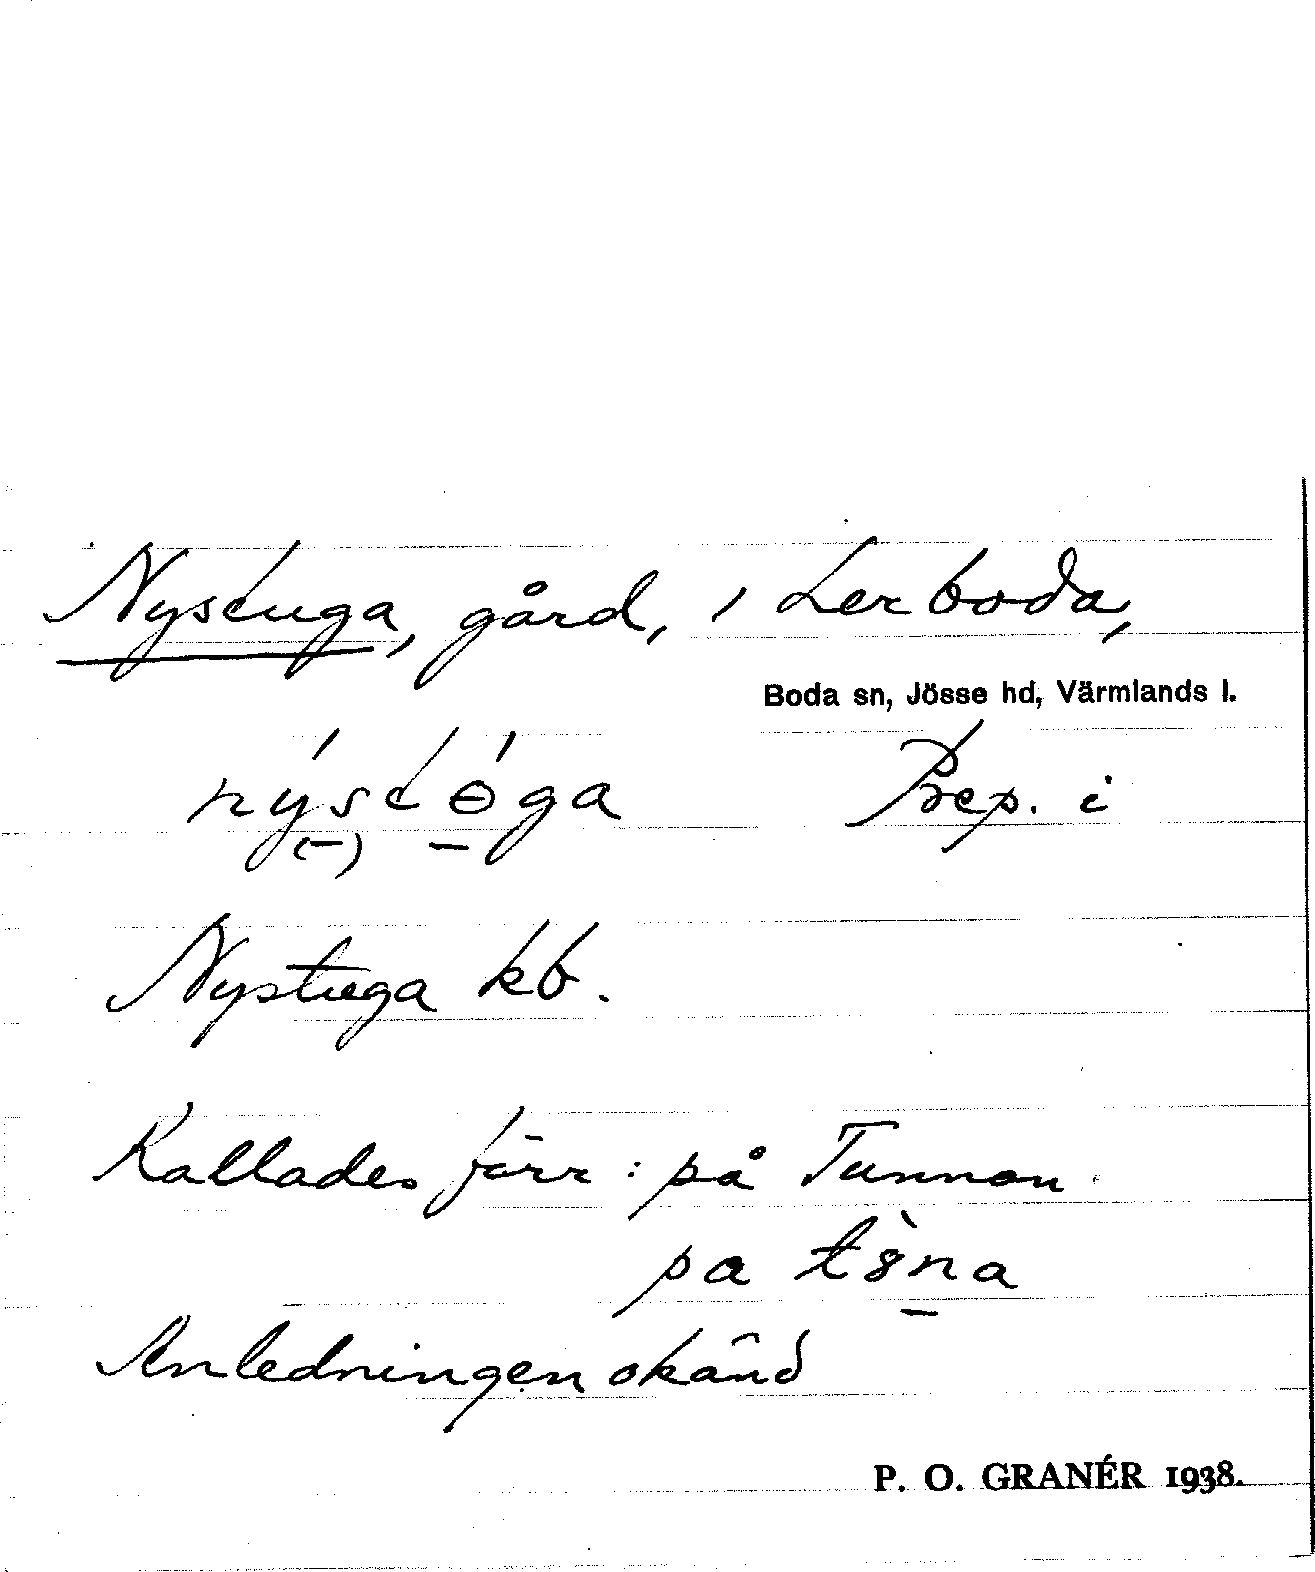 Nystuga, gård, i Lerboda,
Boda sn, Jösse hd, Värmlands l.
nýstɵ́ga Prep. i
(–) –
Nystuga kb.
Kallades förr: på Tunnan
pa t8̀na
Anledningen okänd
P. O. GRANÉR 1938.